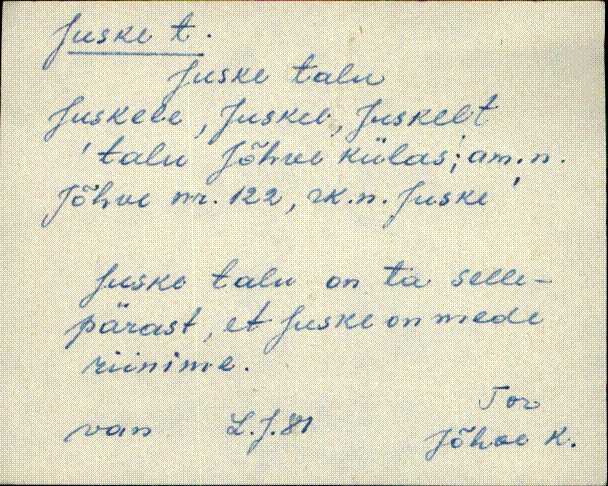 Juske t.
Juske talu
Juskele, Juskel, Juskelt
'talu Jõhve külas; am.n.
Jõhve nr. 122, rk.n. Juske'
Juske talu on ta selle-
pärast, et Juske on mede
riinime.
van L.J. 81 Tor
Jõhve k.